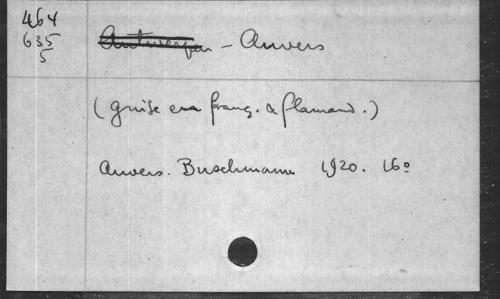 464
635
5
Antwerpen - Anvers
(Guide en franç. & flamand.)
Anvers. Buschmann 1920. 16º